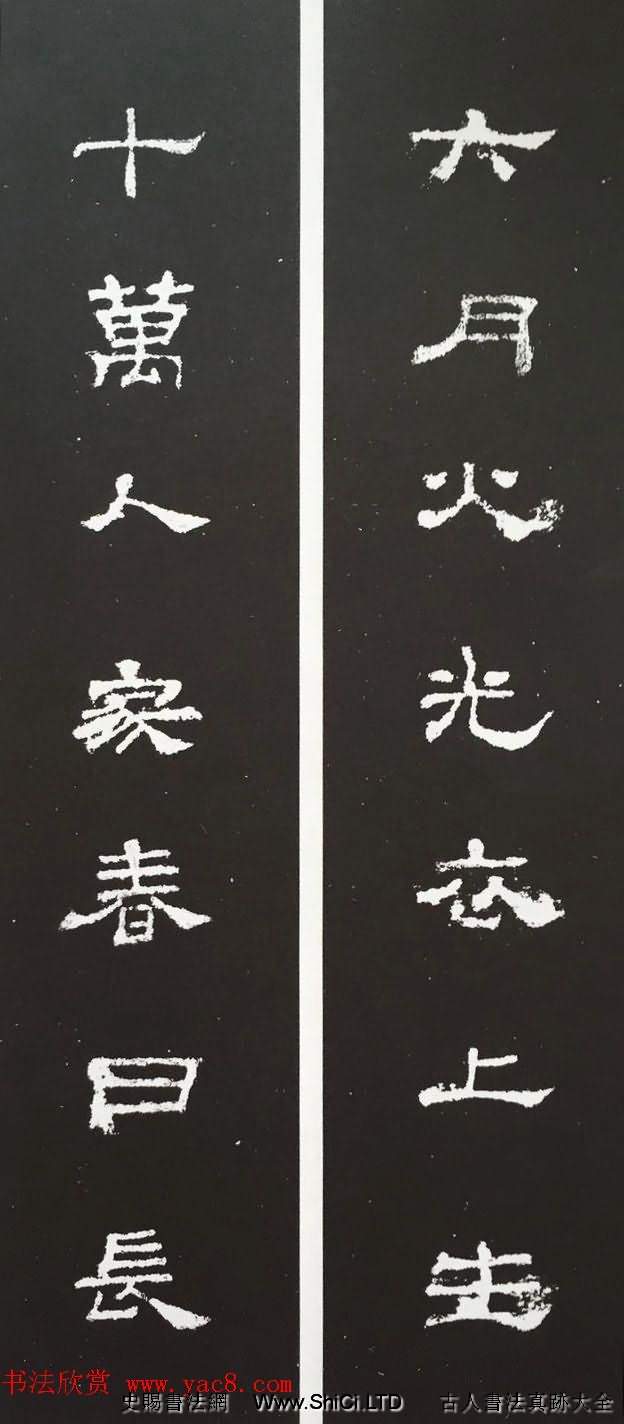 六月火光衣上生
十萬人家春日長
书法欣赏 www.yac8.com
史賜書法網 Www.ShiCi.LTD 古人書法真跡大全